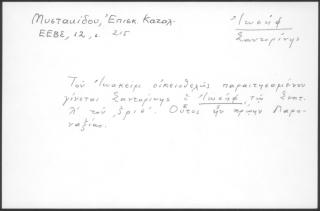 Μυστακίδου, Ἐπισκ. Καταλ.
ΕΕΒΣ, 12, σ. 215
Ἰωσὴφ
Σαντορίνης
Τοῦ Ἰωακεὶμ οἰκειοθελῶς παραιτησαμένου
γίνεται Σαντορίνης ὁ Ἰωσήφ, τῇ
λ' τοῦ Οὗτος ἦν πρῴην Παρο-
ναξίας.